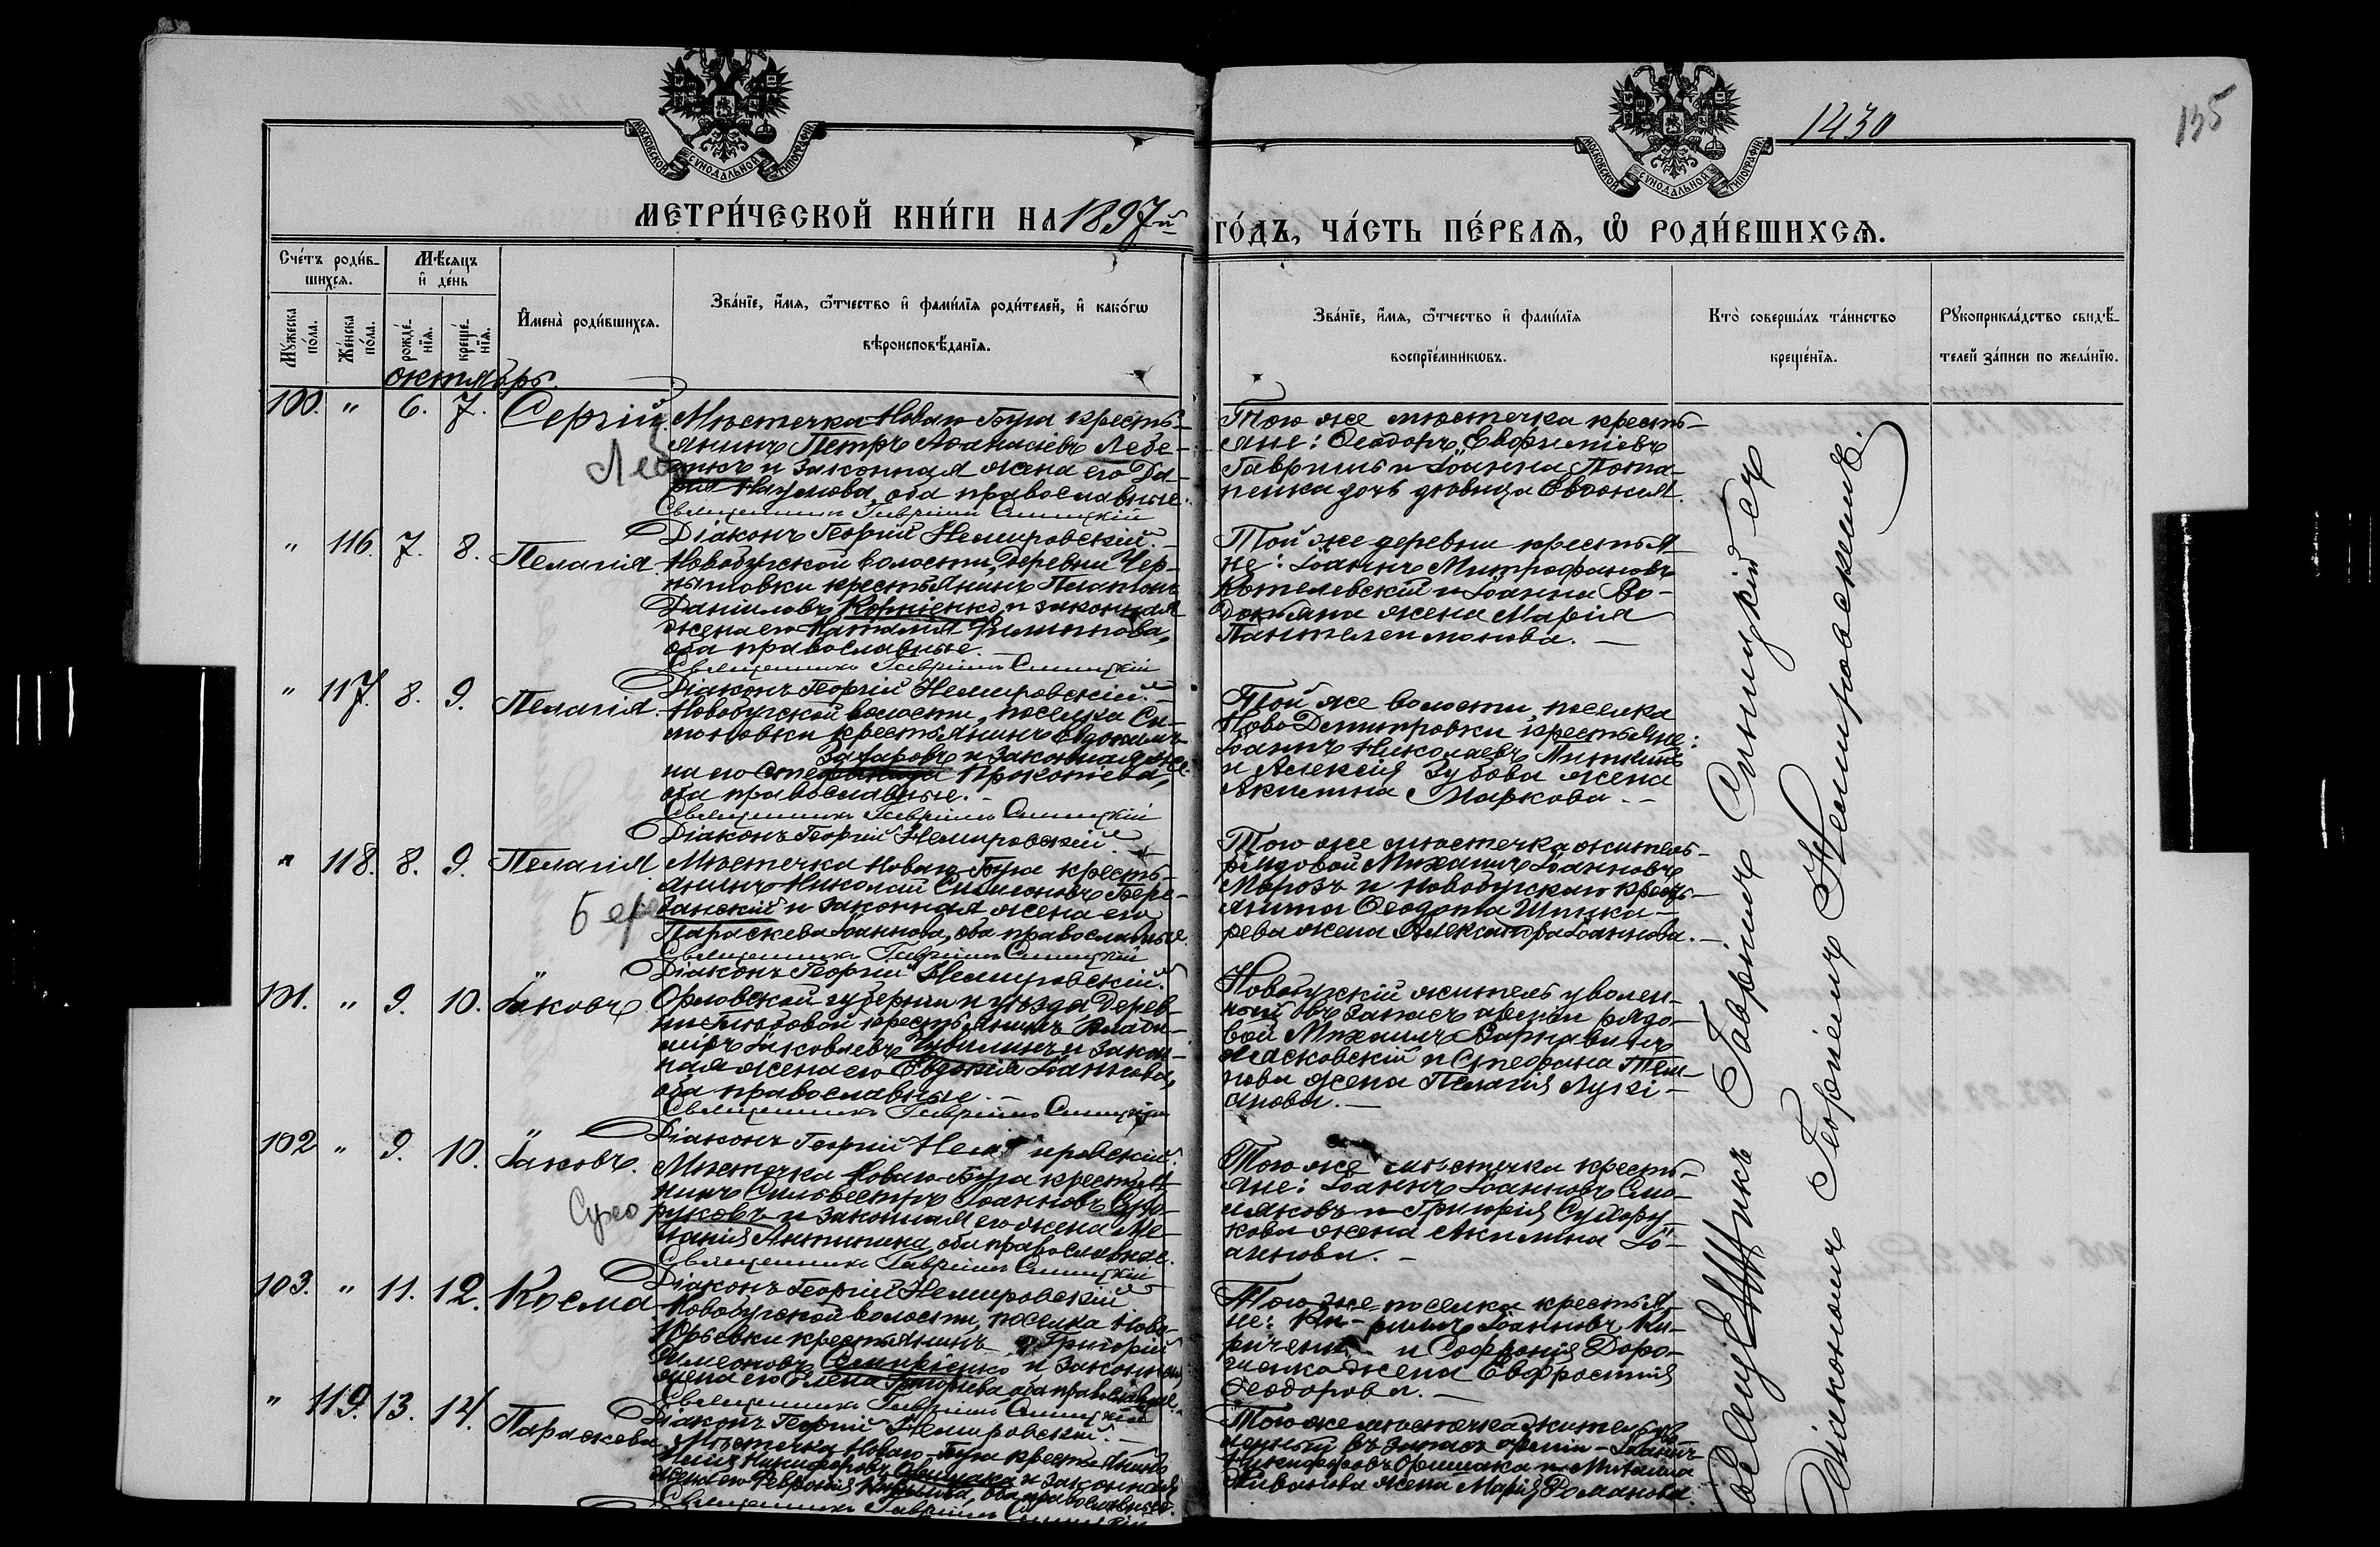 1430
135
МОСКОВСКОЙ СУНОДАЛЬНОЙ ТИПОГРАФІИ
МОСКОВСКОЙ СУНОДАЛЬНОЙ ТИПОГРАФІИ
МЕТРИ́ЧЕСКОЙ КНИ́ГИ НА 1897й
ГО́ДЪ, ЧА́СТЬ ПЕ́РВАѦ, Ѡ҆ РОДИ́ВШИХСѦ.
Сче́тъ роди́в-
шихсѧ.
Мѣ́сѧцъ
и҆ де́нь
Мꙋ́жеска
по́ла.
Же́нска
по́ла.
рожде́-
нїѧ.
креще́-
нїѧ.
И҆мена̀ роди́вшихсѧ.
Зва́нїе, и҆́мѧ, ѻ҆́тчество и҆ фами́лїѧ роди́телей, и҆ како́гѡ
вѣроисповѣ́данїѧ.
Зва́нїе, и҆́мѧ, ѻ҆́тчество и҆ фами́лїѧ
воспрїе́мникѡвъ.
Кто̀ соверша́лъ та́инство
креще́нїѧ.
Рꙋкоприкла́дство свидѣ́-
телей за́писи по жела́нїю.
октябрь.
100. " 6. 7. Сергій. Мѣстечка Новаго-Буга кресть-
янинъ Петръ Аѳанасіевъ Лебе-
Леб
и законная жена его Да-
рія Наумова, оба православные.
Священникъ Гавріилъ Синицкій
Діаконъ Георгій Немировскій.
Того же мѣстечка кресть-
яне: Ѳеодоръ Евфиміевъ
Гавришъ и Іоанна Пота-
пенка дочь дѣвица Евдокія.
" 116. 7. 8. Пелагія. Новобугской волости, деревни Чер-
крестьянинъ Платонъ
Даніиловъ Корніенко и законная
жена его Наталія Филиппова,
оба православные.
Священникъ Гавріилъ Синицкій
Діаконъ Георгій Немировскій.
Той же деревни крестья-
не: Іоаннъ Митрофановъ
Котелевскій и Іоанна Во-
жена Марія
Пантелеимонова.
" 117. 8. 9. Пелагія. Новобугской волости, поселка Си-
моновки крестьянинъ Евдокимъ
Захаровъ и законная же-
на его Прокопіева,
оба православные.
Священникъ Гавріилъ Синицкій
Діаконъ Георгій Немировскій.
Той же волости, поселка
Ново-Дмитровки крестьяне:
Іоаннъ Николаевъ
и Алексія Зубова жена
Акилина Маркова.
" 118. 8. 9. Пелагія. Мѣстечка Новаго-Буга кресть-
янинъ Николай Симеоновъ Бере-
Бере
занскій и законная жена его
Параскева Іоаннова, оба православные.
Священникъ Гавріилъ Синицкій
Діаконъ Георгій Немировскій.
Того же мѣстечка житель
рядовой Михаилъ Іоанновъ
Морозъ и новобугскаго кресть-
янина Ѳеодота
жена Александра Іоаннова.
101. " 9. 10. Іаковъ Орловской губерніи и уѣзда дерев-
ни крестьянинъ Влади-
міръ Іаковлевъ и закон-
ная жена его Евдокія Іоаннова,
оба православные.
Священникъ Гавріилъ Синицкій
Діаконъ Георгій Немировскій.
Новобугскій житель уволен-
ный въ запасъ арміи рядо-
вой Михаилъ
и Стефана
жена Пелагія Лукі-
анова.
102 " 9. 10. Іаковъ. Мѣстечка Новаго-Буга крестья-
нинъ Сильвестръ Іоанновъ Сухо-
Сухо
руковъ и законная его жена Ме-
ланія Антипина, оба православные.
Священникъ Гавріилъ Синицкій
Діаконъ Георгій Немировскій
Того же мѣстечка кресть-
яне: Іоаннъ Іоанновъ
и Григорія Сухору-
кова жена Акилина Іо-
аннова.
103. " 11. 12. Косма Новобугской волости, поселка Ново-
Юрьевки крестьянинъ Григорій
Симеоновъ и законная
жена его Елена Григорьева, оба православные.
Священникъ Гавріилъ Синицкій
Діаконъ Георгій Немировскій.
Того же поселка крестья-
не: Іоанновъ Ки-
и Софронія Доро-
шенка жена Евфросинія
Ѳеодорова.
" 119. 13. 14. Параскева Мѣстечка Новаго-Буга крестьянинъ
Никифоровъ и законная
жена его Февронія оба православные.
Священникъ Гавріилъ Синицкій
Того же мѣстечка житель
въ запасъ арміи Іоаннъ
Никифоровъ и Михаила
жена Марія Романова
Священникъ Гавріилъ Синицкій съ
Діакономъ Георгіемъ Немировскимъ.